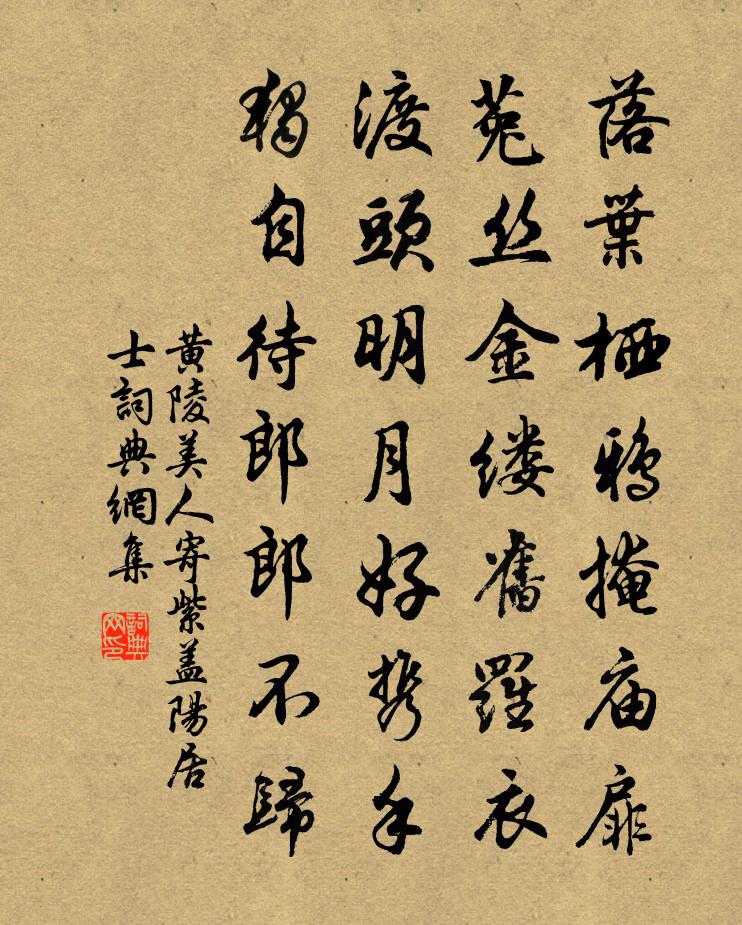 落葉栖鴉掩庙扉
菟丝金缕舊羅衣
渡頭明月好携手
獨自待郎郎不歸
黄陵美人寄紫盖陽居
士詞典網集
詞典網印